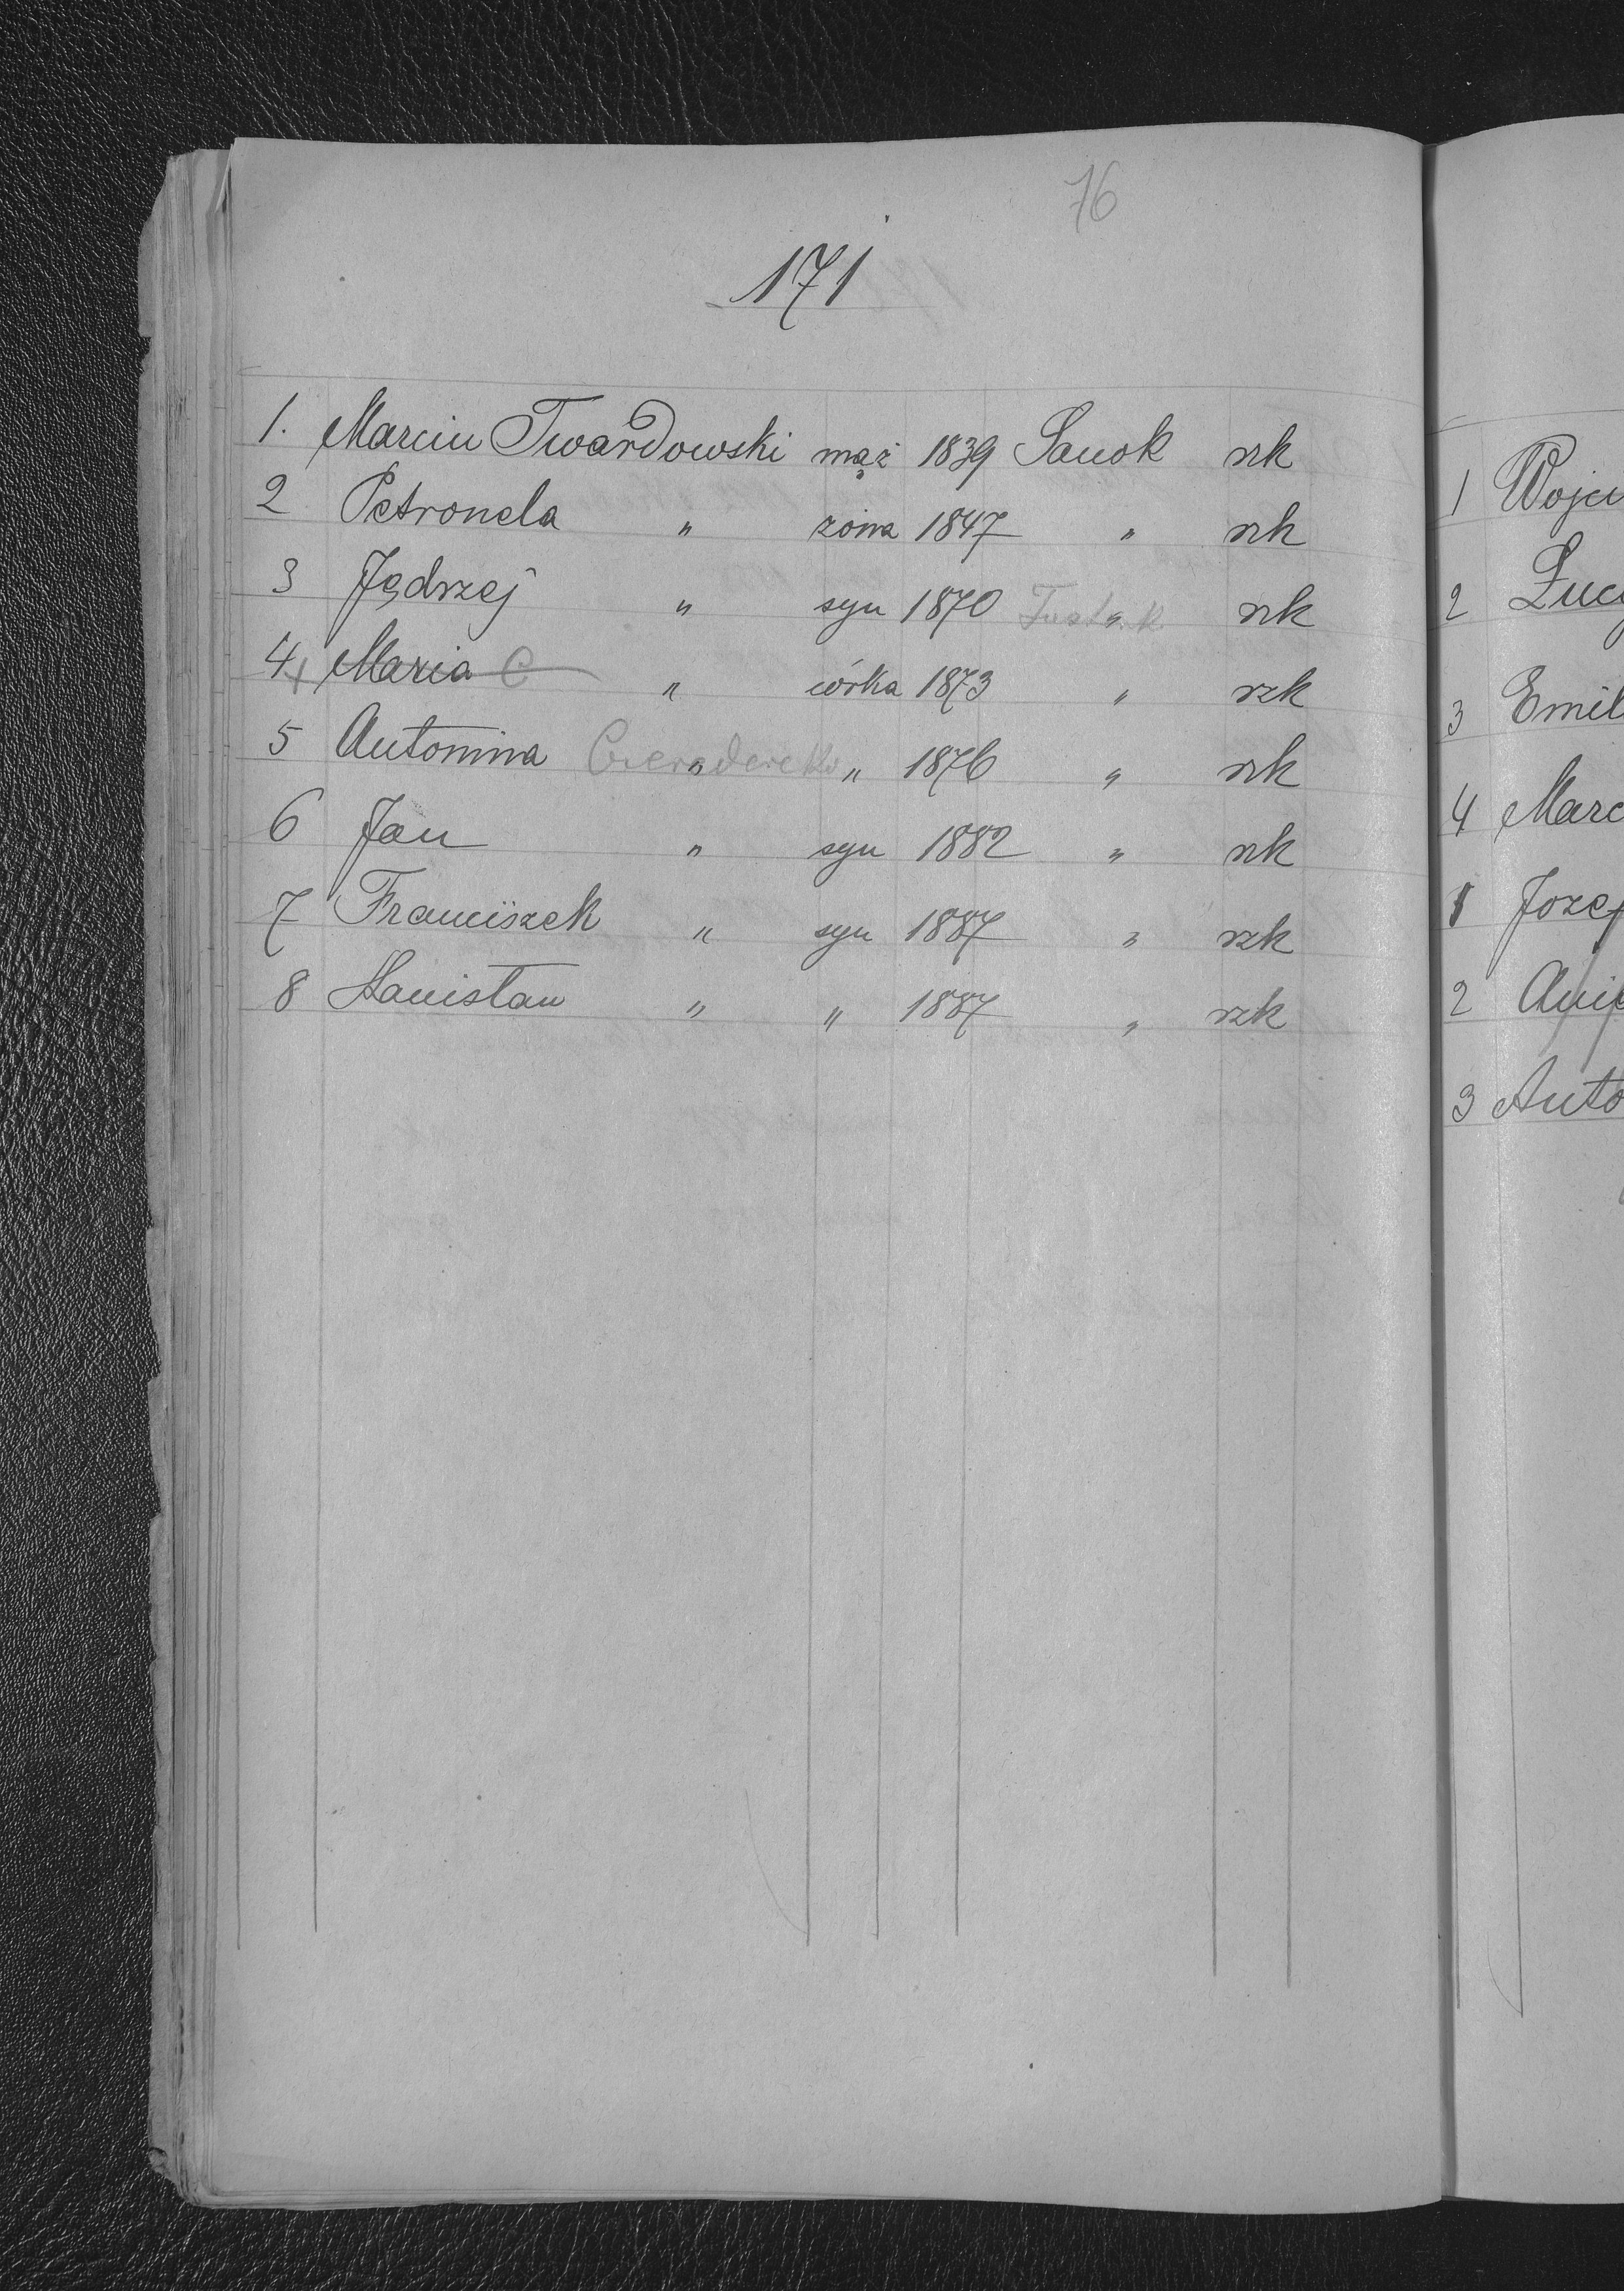 76
171
1. Marcin Twardowski mąż 1839 Sanok rzk
2 Petronela " żona 1847 " rzk
3 Jędrzej " syn 1870 " rzk
4 Maria C " córka 1873 " rzk
5 Antonina " " 1876 " rzk
6 Jan " syn 1882 " rzk
7 Franciszek " syn 1887 " rzk
8 Stanisław " " 1887 " rzk
1 Wojci
2 Łucy
3 Emil
4 Marc
1 Józef
2 Anie
3 Anto